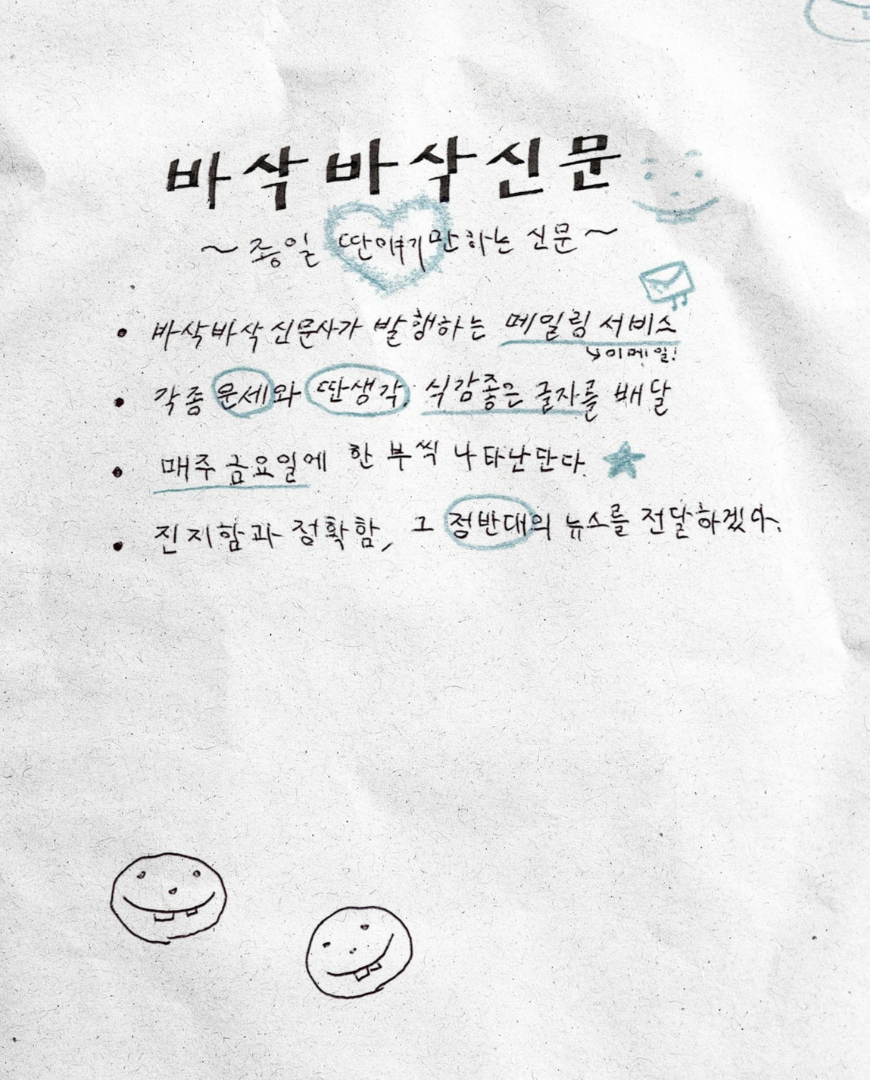 바삭바삭신문
~종일 딴얘기만하는 신문~
• 바삭바삭 신문사가 발행하는 메일링 서비스
↘이메일!
• 각종 운세와 딴생각, 식감좋은 글자를 배달
• 매주 금요일에 한 부씩 나타난단다
• 진지함과 정확함, 그 정반대의 뉴스를 전달하겠다.